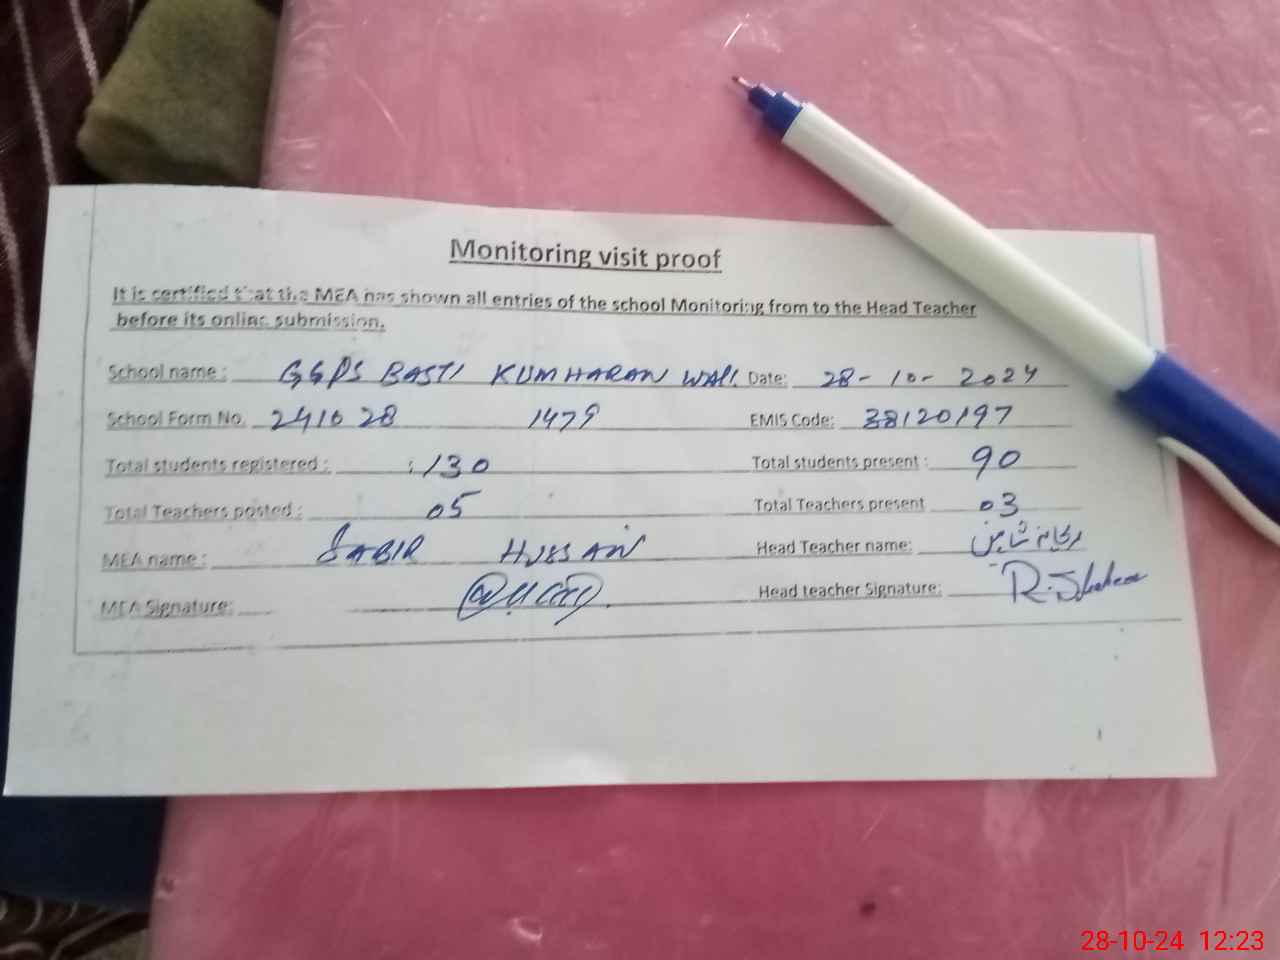 Monitoring visit proof
It is certified that the MEA has shown all entries of the school Monitoring from to the Head Teacher
before its online submission.
School name : GGPS BASTI KUMHARAN WALI Date: 28-10-2024
School Form No. 241028 1479 EMIS Code: 38120197
Total students registered : 130 Total students present : 90
Total Teachers posted : 05 Total Teachers present 03
MEA name : SABIR HUSSAIN Head Teacher name: ریحانہ شاہین
MEA Signature: Head teacher Signature: R. Shaheen
28-10-24 12:23